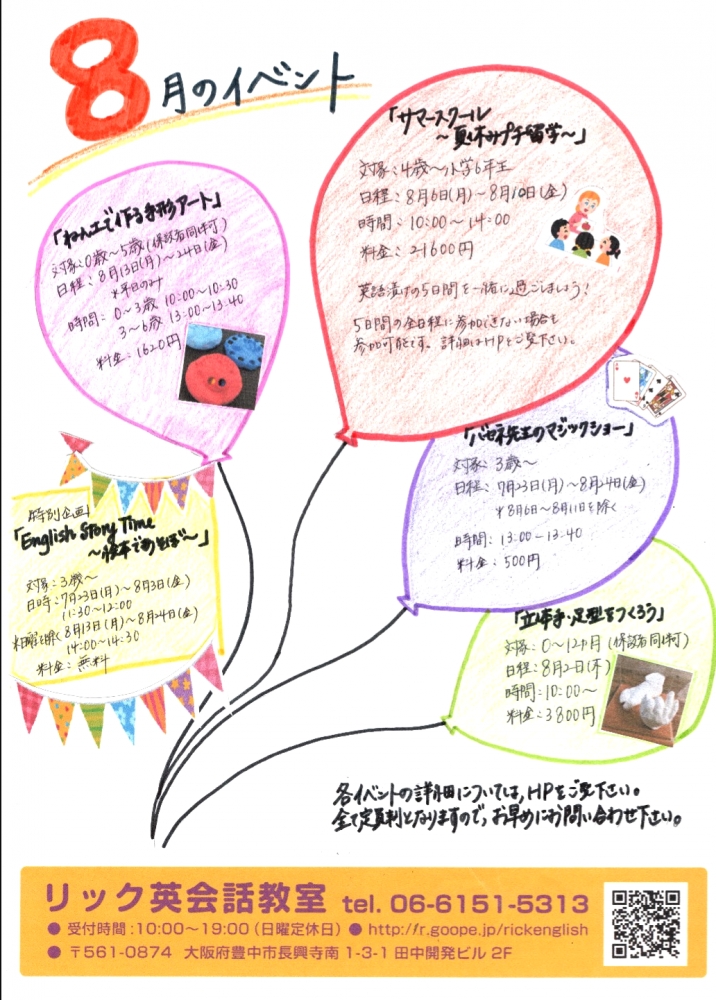 8月のイベント
「サマースクール
～夏休みプチ留学～」
対象：4歳～小学6年生
日程：8月6日(月)～8月10日(金)
時間：10:00～14:00
料金：21600円
英語漬けの5日間を一緒に過ごしましょう！
5日間の全日程に参加できない場合も
参加可能です。詳細はHPをご覧下さい。
「ねん土で作る手形アート」
対象：0歳～5歳(保護者同伴可)
日程：8月13日(月)～24日(金)
*平日のみ
時間：0～3歳 10:00～10:30
3～6歳 13:00～13:40
料金：1620円
「バセネ先生のマジックショー」
対象：3歳～
日程：7月23日(月)～8月24日(金)
*8月6日～8月11日を除く
時間：13:00～13:40
料金：500円
特別企画！
「English Story Time
～絵本であそぼ～」
対象：3歳～
日時：7月23日(月)～8月3日(金)
11:30～12:00
8月13日(月)～8月24日(金)
14:00～14:30
料金：無料
「立体手・足型をつくろう」
対象：0～12ヶ月(保護者同伴可)
日程：8月2日(木)
時間：10:00～
料金：3800円
各イベントの詳細については、HPをご覧下さい。
全て定員制となりますので、お早めにお問い合わせ下さい。
リック英会話教室 tel. 06-6151-5313
● 受付時間：10:00～19:00（日曜定休日）● http://r.goope.jp/rickenglish
● 〒561-0874 大阪府豊中市長興寺南 1-3-1 田中開発ビル 2F